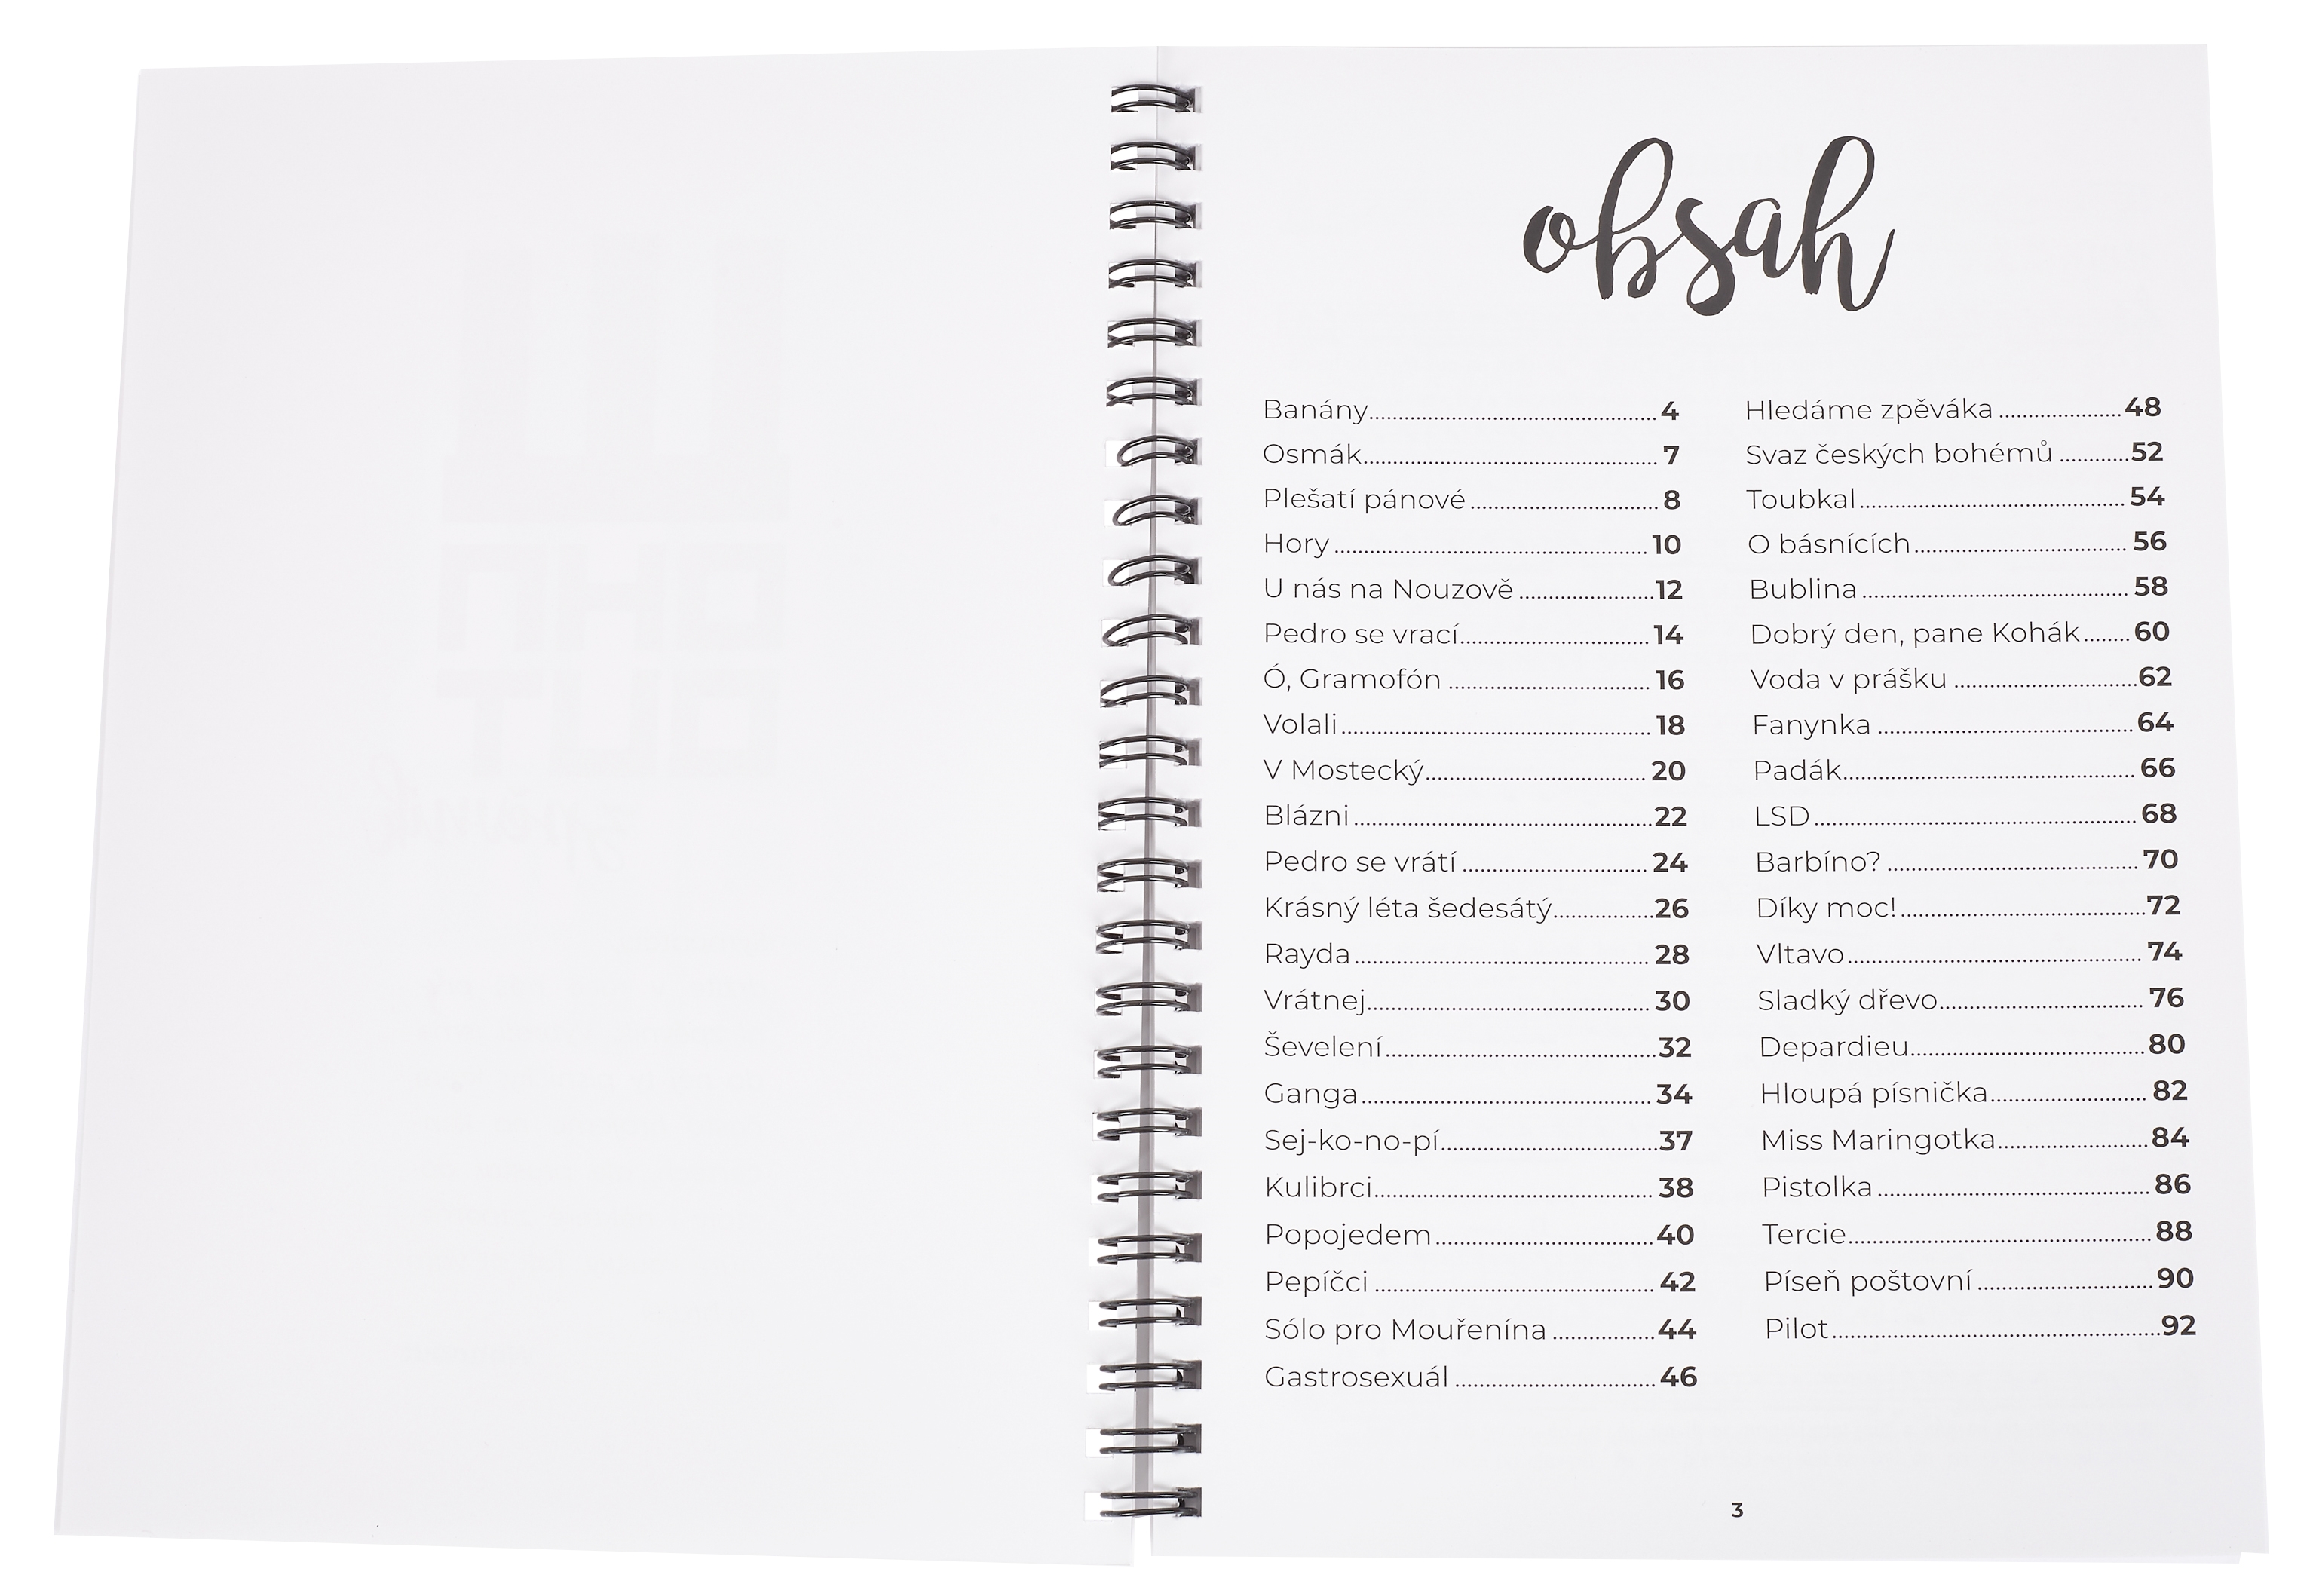 obsah
Banány 4
Osmák 7
Plešatí pánové 8
Hory 10
U nás na Nouzově 12
Pedro se vrací 14
Ó, Gramofón 16
Volali 18
V Mostecký 20
Blázni 22
Pedro se vrátí 24
Krásný léta šedesátý 26
Rayda 28
Vrátnej 30
Ševelení 32
Ganga 34
Sej-ko-no-pí 37
Kulibrci 38
Popojedem 40
Pepíčci 42
Sólo pro Mouřenína 44
Gastrosexuál 46
Hledáme zpěváka 48
Svaz českých bohémů 52
Toubkal 54
O básnících 56
Bublina 58
Dobrý den, pane Kohák 60
Voda v prášku 62
Fanynka 64
Padák 66
LSD 68
Barbíno? 70
Díky moc! 72
Vltavo 74
Sladký dřevo 76
Depardieu 80
Hloupá písnička 82
Miss Maringotka 84
Pistolka 86
Tercie 88
Píseň poštovní 90
Pilot 92
3